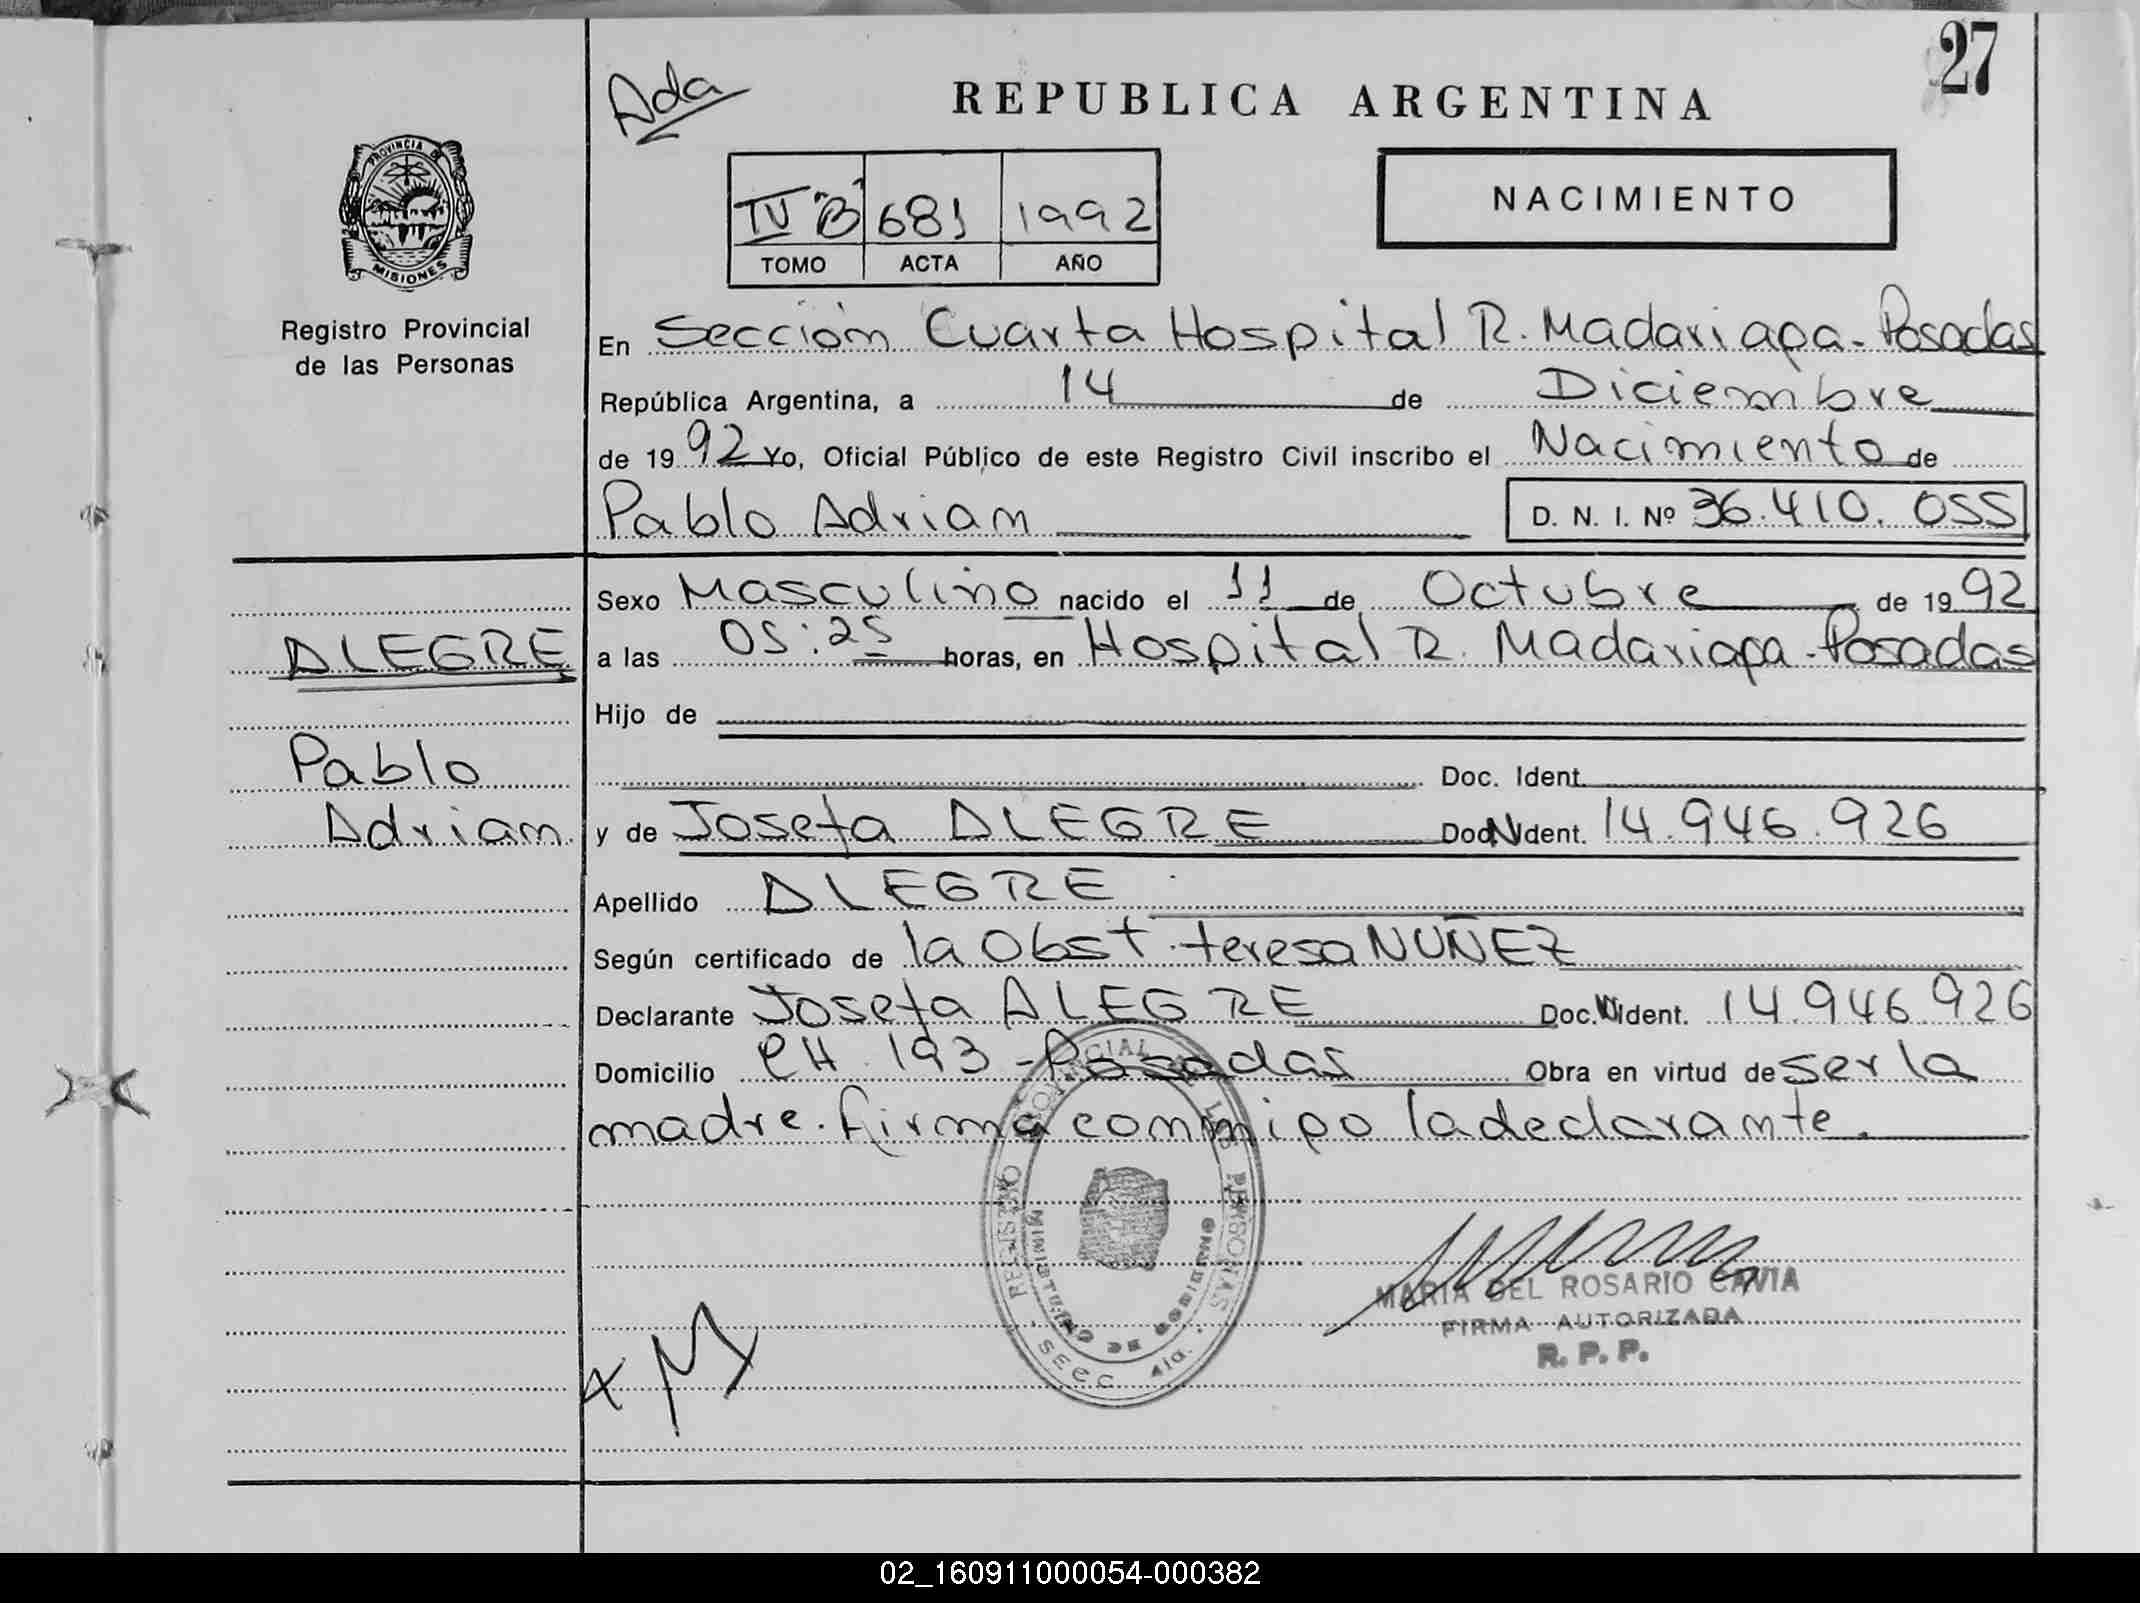 27
Ada
REPUBLICA ARGENTINA
PROVINCIA DE
MISIONES
Registro Provincial
de las Personas
IV "B" 681 1992
TOMO ACTA AÑO
NACIMIENTO
En Sección Cuarta Hospital R. Madariaga - Posadas
República Argentina, a 14 de Diciembre
de 1992 Yo, Oficial Público de este Registro Civil inscribo el Nacimiento de
Pablo Adrian D. N. I. Nº 36.410.055
Sexo Masculino nacido el 11 de Octubre de 1992
ALEGRE
a las 05:25 horas, en Hospital R. Madariaga - Posadas
Hijo de
Pablo
Doc. Ident.
Adrian
y de Josefa ALEGRE Doc. Ident. 14.946.926
Apellido ALEGRE
Según certificado de la Obst. teresa NUÑEZ
Declarante Josefa ALEGRE Doc. Ident. 14.946.926
Domicilio CH 193 - Posadas Obra en virtud de ser la
madre. firma conmigo la declarante.
REGISTRO PROVINCIAL DE LAS PERSONAS
MINISTERIO DE GOBIERNO
SECC 4ta.
MARIA DEL ROSARIO CAVIA
FIRMA AUTORIZADA
R. P. P.
02_160911000054-000382